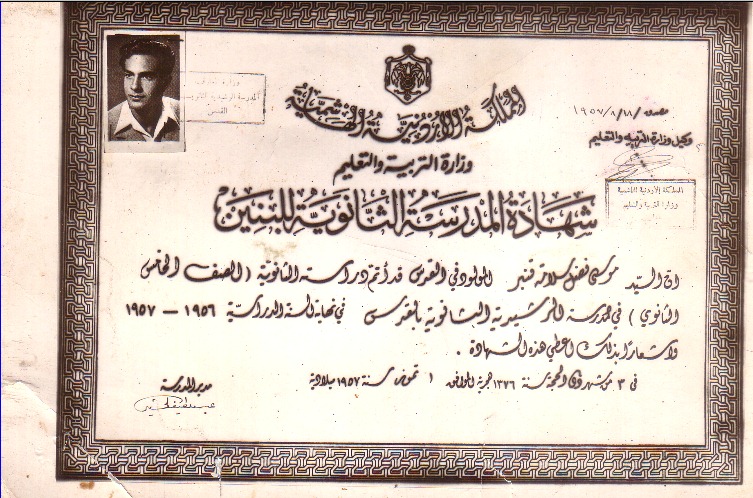 المملكة الأردنية الهاشمية
وزارة التربية والتعليم
شهادة المدرسة الثانوية للبنين
١٩٥٧/٨/١١
وكيل وزارة التربية والتعليم
المملكة الأردنية الهاشمية
وزارة التربية والتعليم
وزارة
المدرسة الرشيدية الثانوية
القدس
ان السيد موسى فضل سلامة قنبر المولود في القدس قد أتم دراسته الثانوية (الصف الخامس
الثانوي) في المدرسة الرشيدية الثانوية بالقدس في نهاية السنة الدراسية ١٩٥٦ – ١٩٥٧
واشعارًا بذلك اعطي هذه الشهادة .
في ٣ من شهر ذي الحجة سنة ١٣٧٦ هجرية الموافق ١ تموز سنة ١٩٥٧ ميلادية
مدير المدرسة